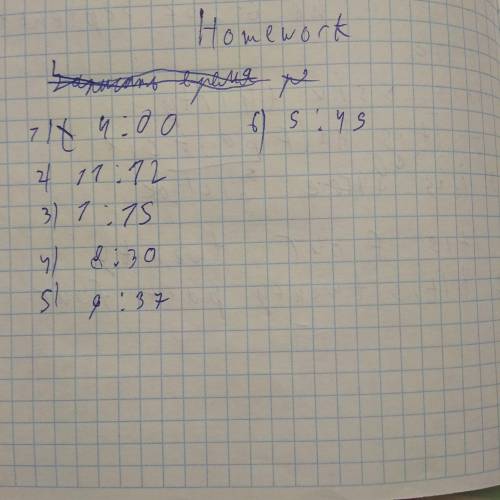 Homework
Записать время
1) 4:00
2) 11:12
3) 1:15
4) 8:30
5) 9:37
6) 5:45